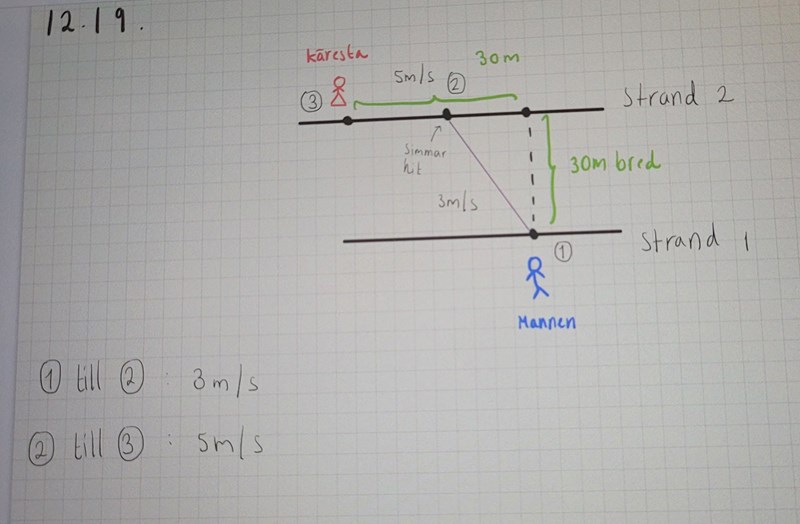 12.19.
käresta
5m/s ② 30m
③
Strand 2
Simmar
hit
30m bred
3m/s
Strand 1
①
Mannen
① till ② : 3m/s
② till ③ : 5m/s